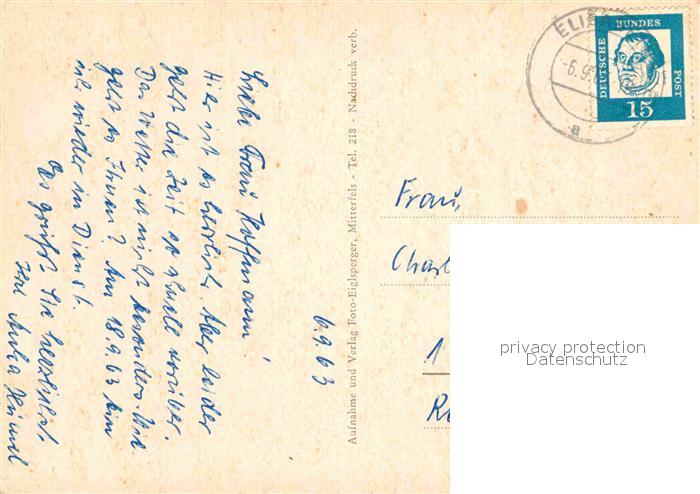 6.9.63
Liebe Frau Hoffmann!
Hier ist es herrlich. Aber leider
geht die Zeit so schnell vorüber.
Das Wetter ist nicht besonders. Wie
geht es Ihnen? Am 18.9.63 bin
ich wieder in Dienst.
Es grüßt Sie herzlichst
Ihre Anna
Aufnahme und Verlag Foto-Eiglsperger, Mitterfels - Tel. 218 - Nachdruck verb.
ELI
-6.9.
a
DEUTSCHE BUNDES POST
15
Frau
Charl
1
privacy protection
Datenschutz